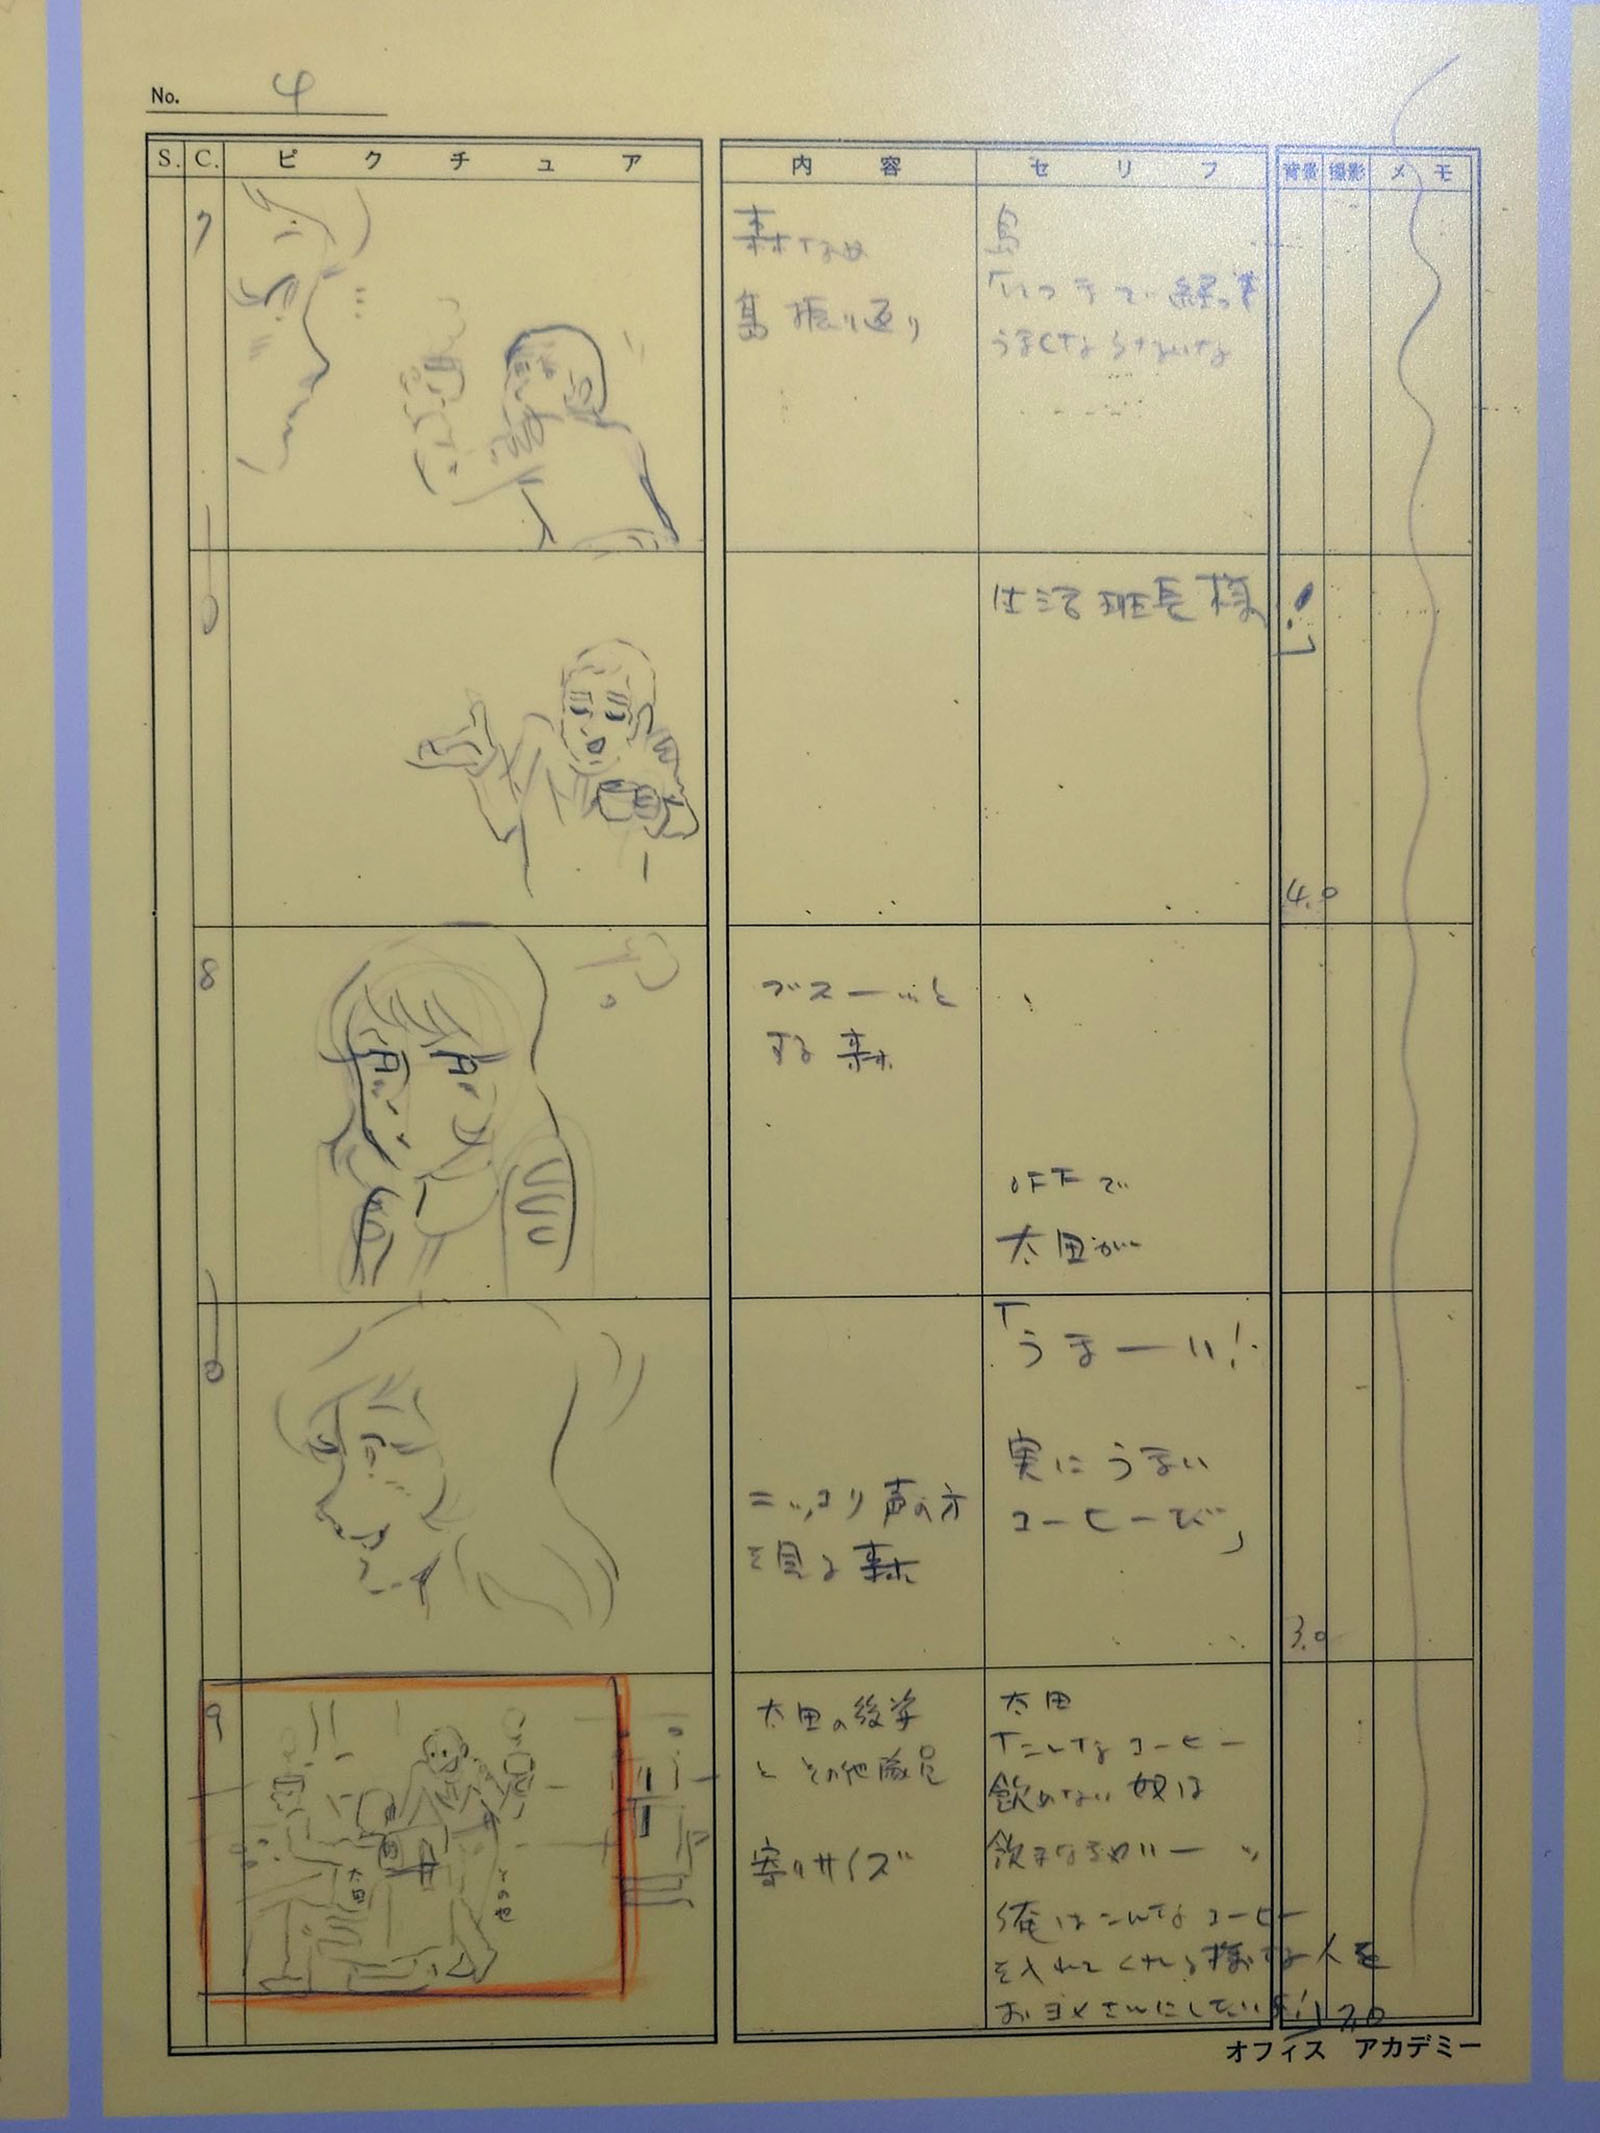 No. 4
S. C. ピクチュア 内容 セリフ 背景 撮影 メモ
7
森なめ
島振り返り
島
「いつまで経っても
うまくならないな
生活班長様!」
4.0
8
ブスーッと
する森
OFFで
太田が
「うまーい!
実にうまい
コーヒーだ」
ニッコリ声の方
を見る森
3.0
9
太田の後姿
と その他隊員
寄りサイズ
太田
その他
太田
「こんなコーヒー
飲めない奴は
飲まなきゃいーッ
俺はこんなコーヒー
を入れてくれる様な人を
お ヨメさんにしたい
7.0
オフィス アカデミー